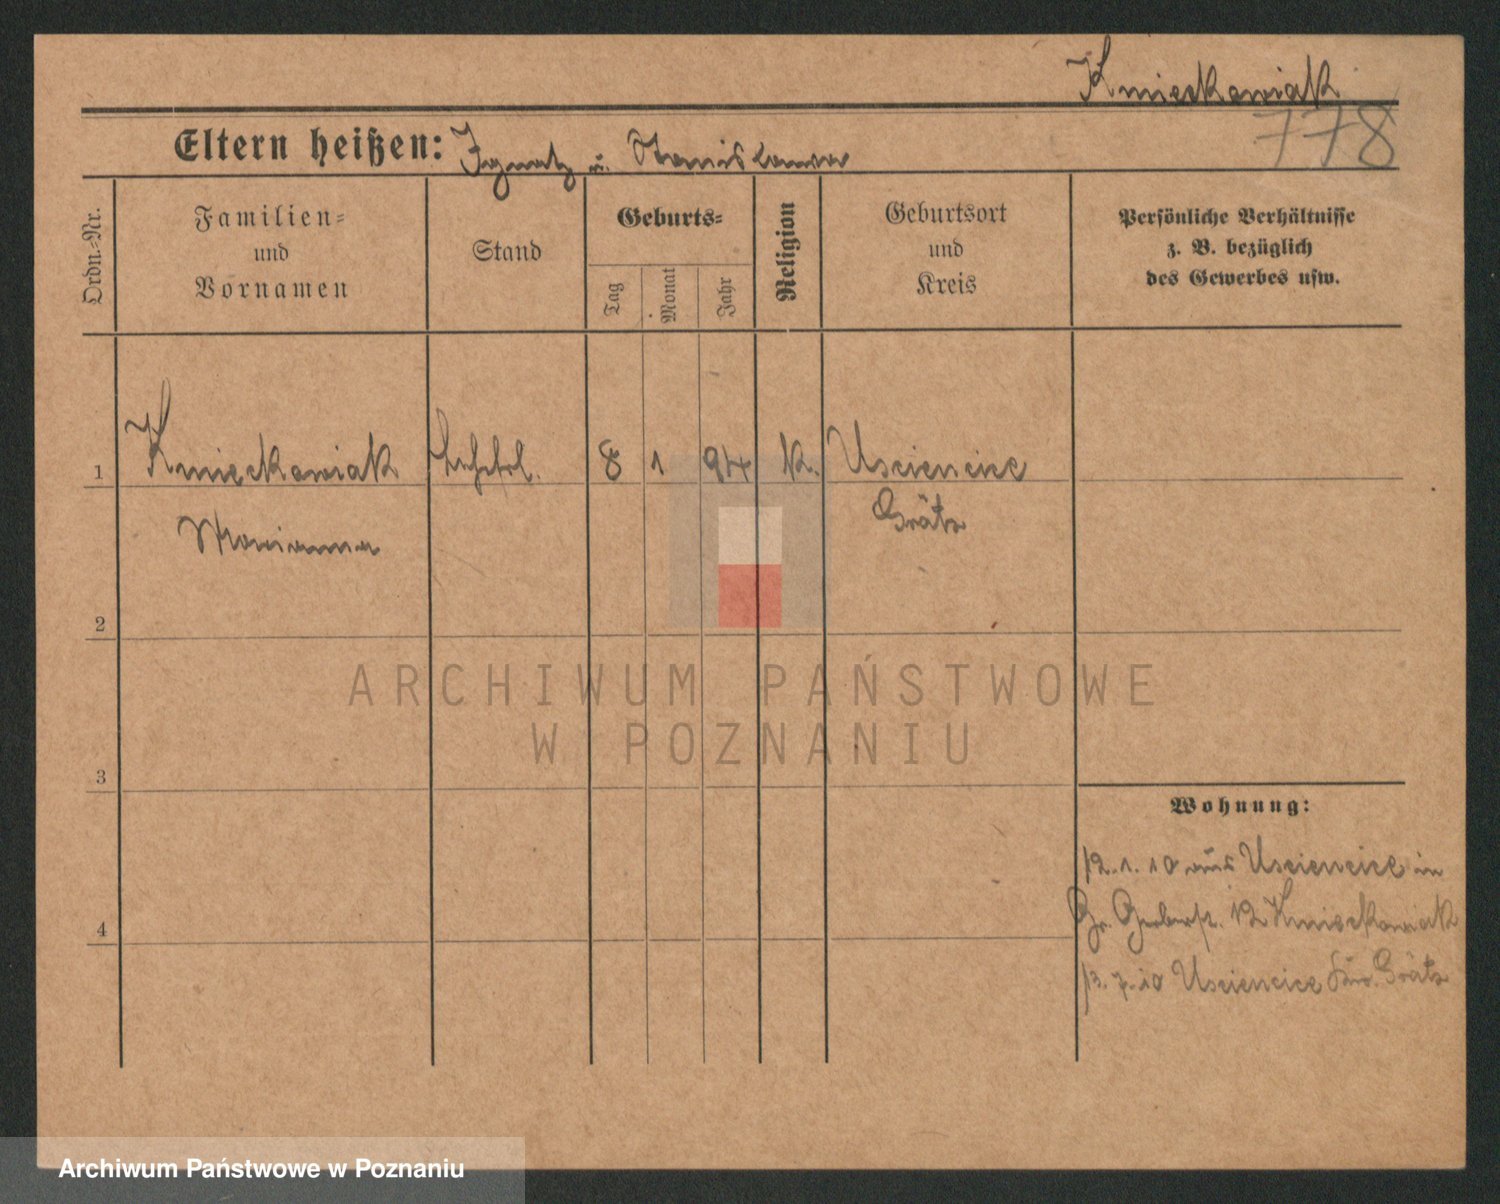 Kmieckowiak
778
Eltern heißen: Ignatz u. Stanislawa
Ordn.-Nr.
Familien-
und
Vornamen
Stand
Geburts-
Tag
Monat
Jahr
Religion
Geburtsort
und
Kreis
Persönliche Verhältnisse
z. B. bezüglich
des Gewerbes usw.
1 Kmieckowiak 8 1 94 k. Usciencice
Marianna Grätz
2
ARCHIWUM PAŃSTWOWE
W POZNANIU
3
Wohnung:
12.1.10 aus Usciencice in
Gr. Gerberst. 12 Kmieckowiak
13.7.10 Usciencice Grätz
4
Archiwum Państwowe w Poznaniu